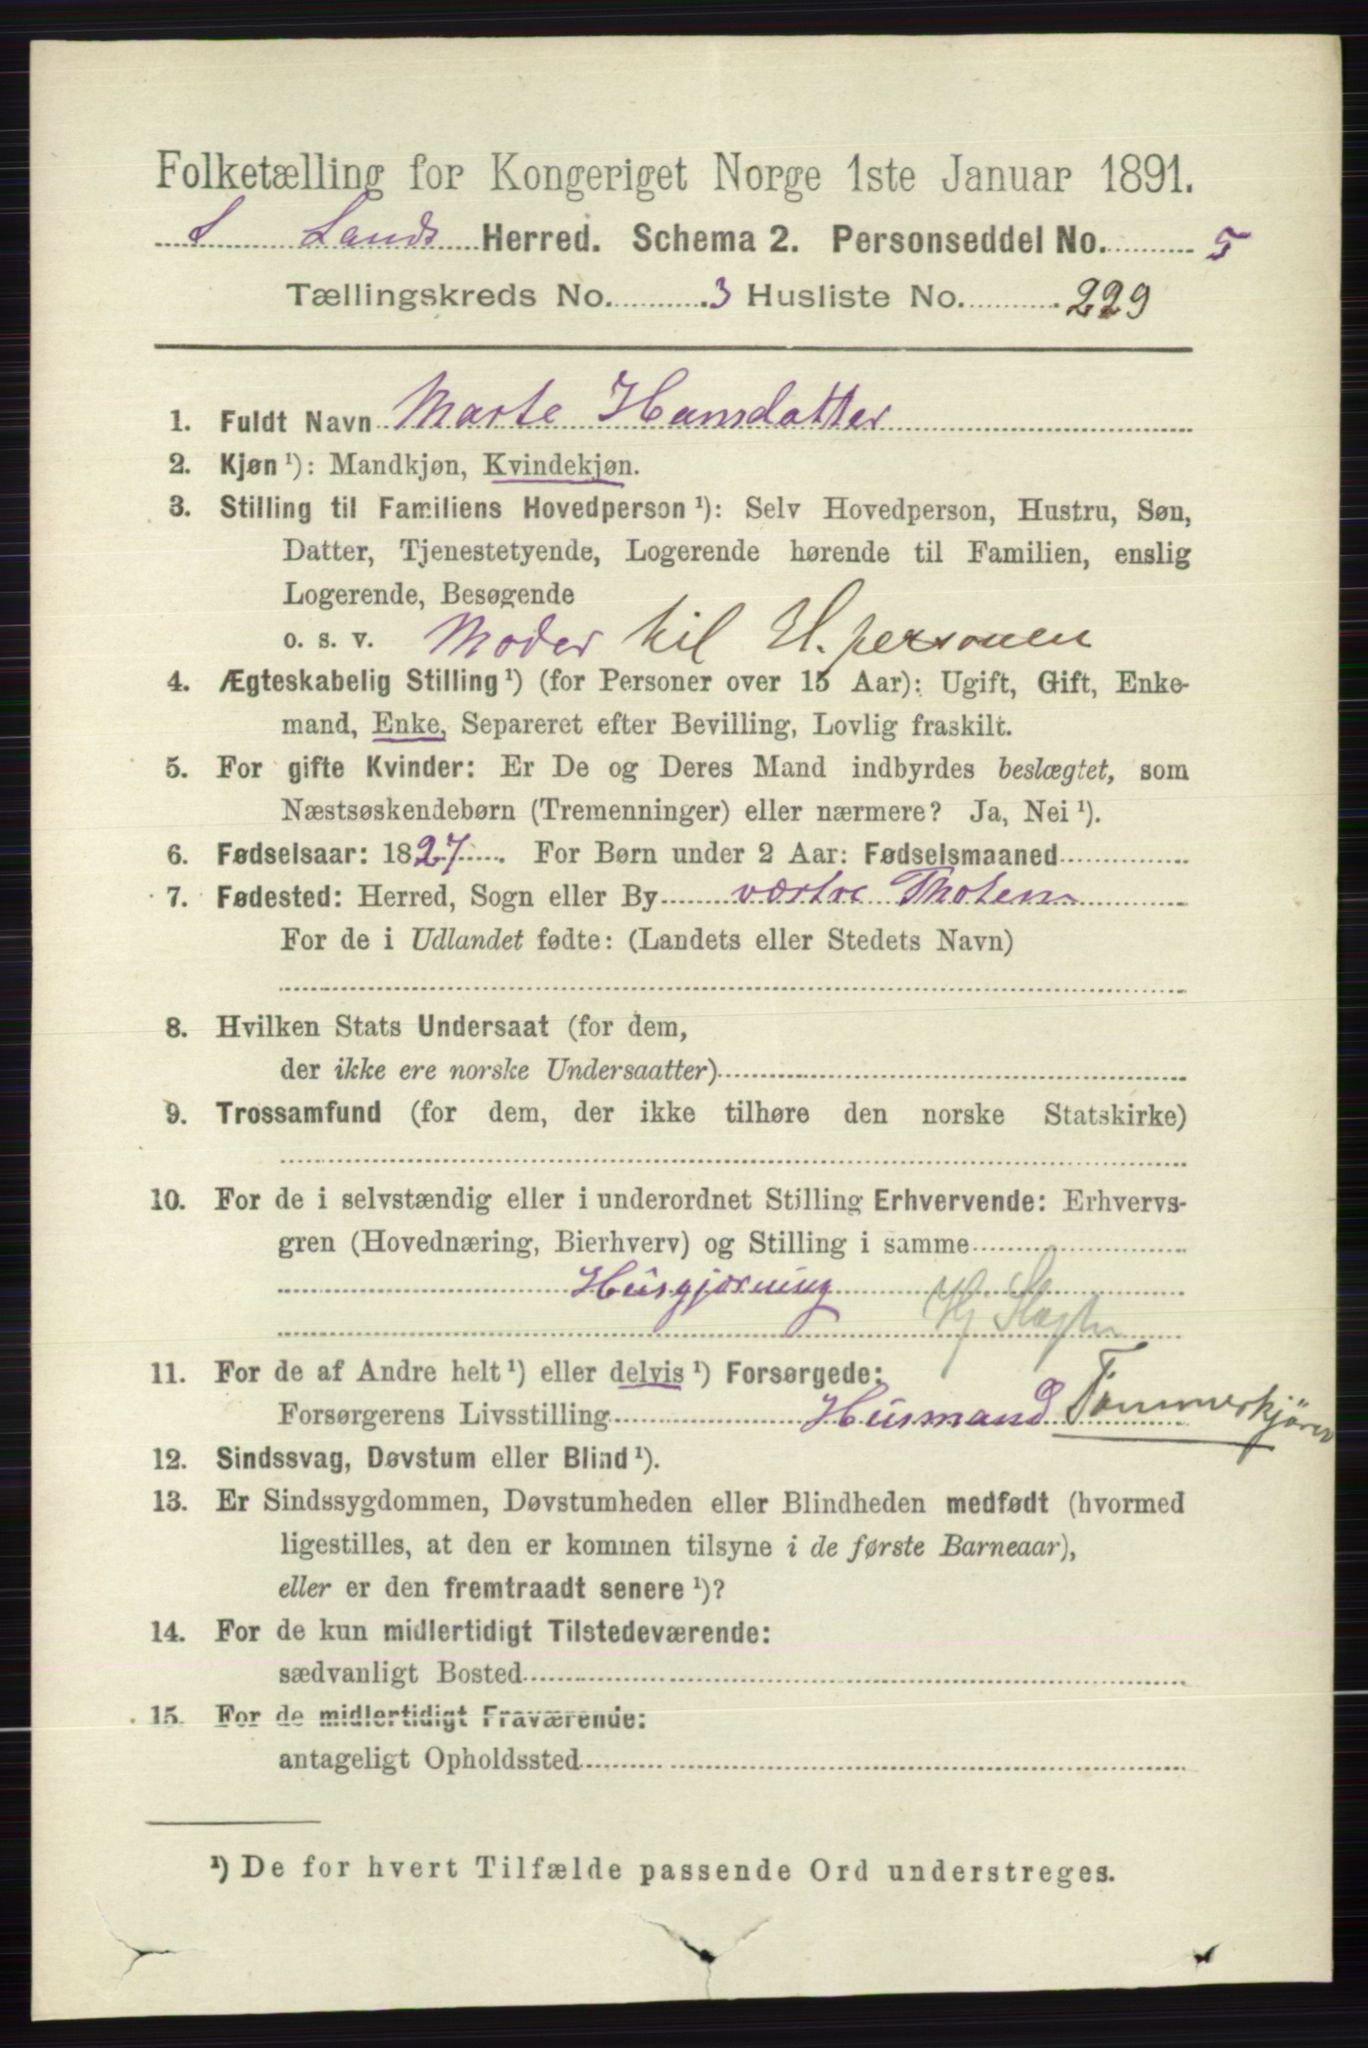 Folketælling for Kongeriget Norge 1ste Januar 1891.
S Lands Herred. Schema 2. Personseddel No. 5
Tællingskreds No. 3 Husliste No. 229
1. Fuldt Navn Marte Hansdatter
2. Kjøn ¹): Mandkjøn, Kvindekjøn.
3. Stilling til Familiens Hovedperson ¹): Selv Hovedperson, Hustru, Søn,
Datter, Tjenestetyende, Logerende hørende til Familien, enslig
Logerende, Besøgende
o. s. v. Moder til H. personen
4. Ægteskabelig Stilling ¹) (for Personer over 15 Aar): Ugift, Gift, Enke-
mand, Enke, Separeret efter Bevilling, Lovlig fraskilt.
5. For gifte Kvinder: Er De og Deres Mand indbyrdes beslægtet, som
Næstsøskendebørn (Tremenninger) eller nærmere? Ja, Nei ¹).
6. Fødselsaar: 1827. For Børn under 2 Aar: Fødselsmaaned
7. Fødested: Herred, Sogn eller By væstre Thoten
For de i Udlandet fødte: (Landets eller Stedets Navn)
8. Hvilken Stats Undersaat (for dem,
der ikke ere norske Undersaatter)
9. Trossamfund (for dem, der ikke tilhøre den norske Statskirke)
10. For de i selvstændig eller i underordnet Stilling Erhvervende: Erhvervs-
gren (Hovednæring, Bierhverv) og Stilling i samme
Husgjerning
11. For de af Andre helt ¹) eller delvis ¹) Forsørgede:
Forsørgerens Livsstilling Husmand Tømmerkjører
12. Sindssvag, Døvstum eller Blind ¹).
13. Er Sindssygdommen, Døvstumheden eller Blindheden medfødt (hvormed
ligestilles, at den er kommen tilsyne i de første Barneaar),
eller er den fremtraadt senere ¹)?
14. For de kun midlertidigt Tilstedeværende:
sædvanligt Bosted
15. For de midlertidigt Fraværende:
antageligt Opholdssted
¹) De for hvert Tilfælde passende Ord understreges.